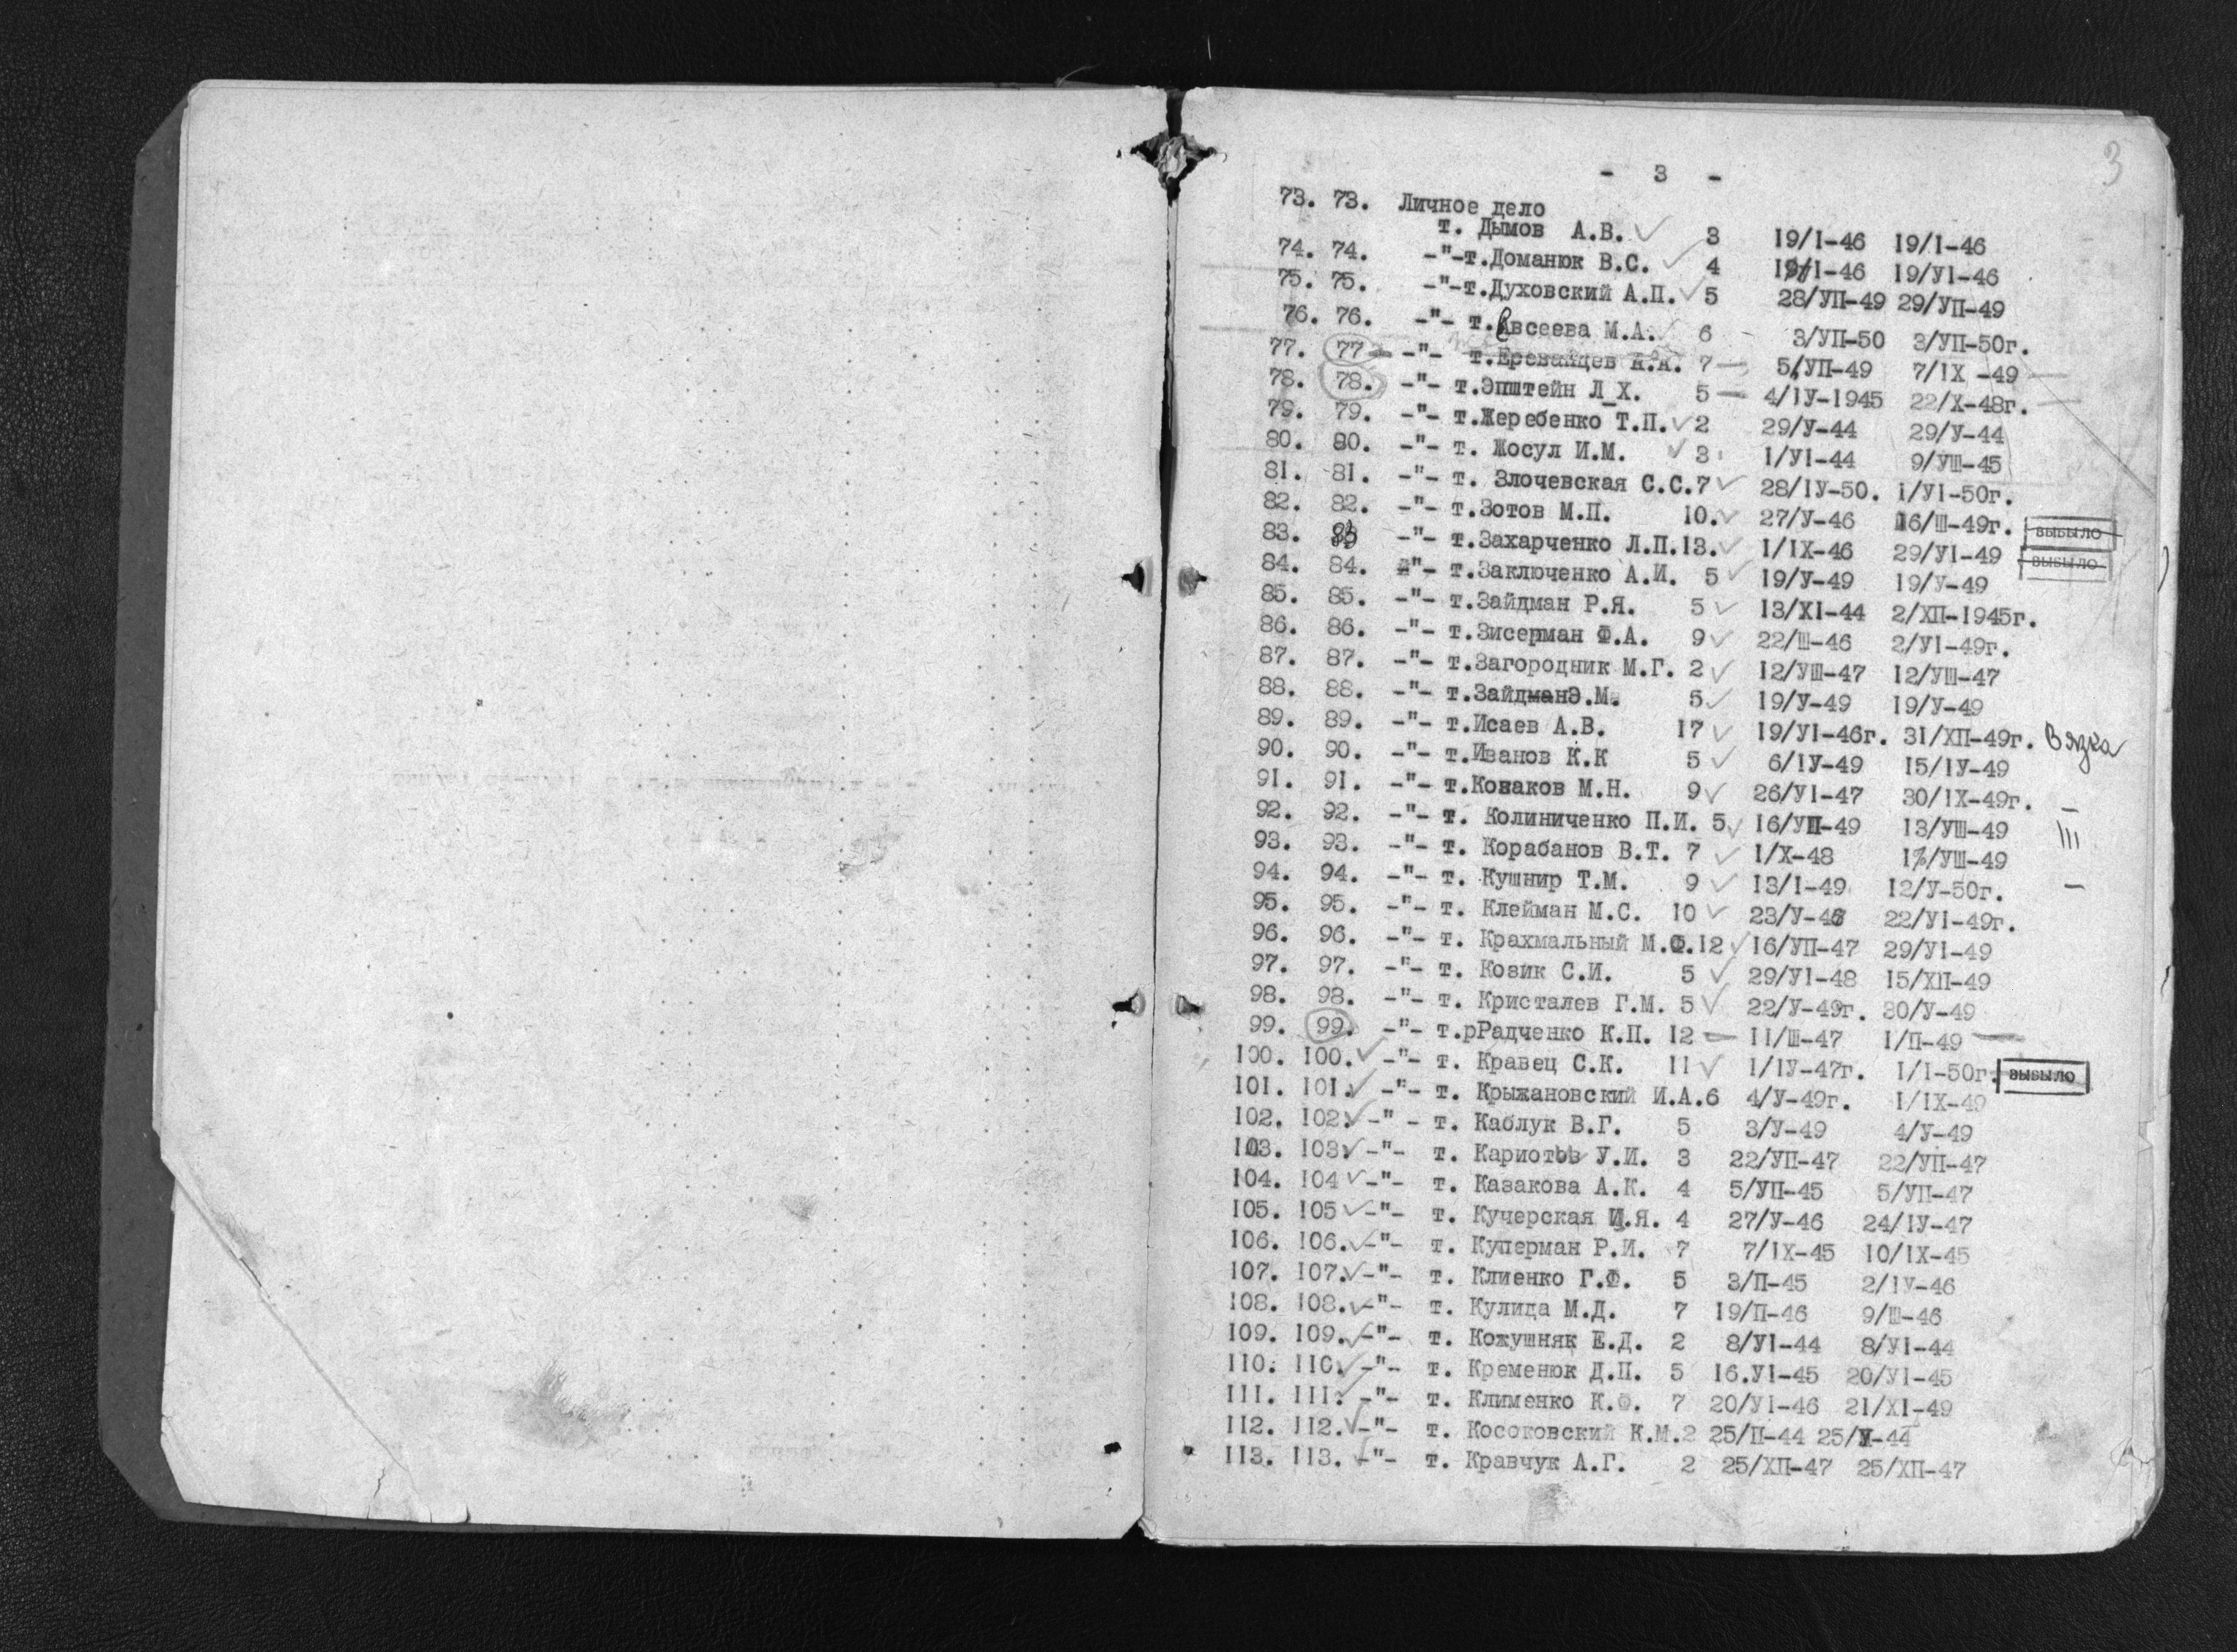 3
- 3 -
73. 73. Личное дело
т. Дымов А.В. ✓ 3 19/1-46 19/1-46
74. 74. -"-т.Доманюк В.С. ✓ 4 19/1-46 19/У1-46
75. 75. -"-т.Духовский А.П. ✓ 5 28/УП-49 29/УП-49
76. 76. -"- т.Евсеева М.А. ✓ 6 - 3/УП-50 3/УП-50г.
77. 77 -"- т.Ереванцев 7 — 5/УП-49 7/1Х -49
78. 78. -"- т.Эпштейн Л_Х. 5 — 4/1У-1945 22/Х-48г.
79. 79. -"- т.Жеребенко Т.П. ✓ 2 29/У-44 29/У-44
80. 80. -"- т. Жосул И.М. ✓ 3 1/У1-44 9/УШ-45
81. 81. -"- т. Злочевская С.С.7 ✓ 28/1У-50. 1/У1-50г.
82. 82. -"- т.Зотов М.П. 10. ✓ 27/У-46 16/Ш-49г. ВЫБЫЛО
83. 83 -"- т.Захарченко Л.П.13. ✓ 1/1Х-46 29/У1-49 ВЫБЫЛО
84. 84. -"- т.Заключенко А.И. 5 ✓ 19/У-49 19/У-49
85. 85. -"- т.Зайдман Р.Я. 5 ✓ 13/Х1-44 2/ХП-1945г.
86. 86. -"- т.Зисерман Ф.А. 9 ✓ 22/Ш-46 2/У1-49г.
87. 87. -"- т.Загородник М.Г. 2 ✓ 12/УШ-47 12/УШ-47
88. 88. -"- т.ЗайдманЭ.М. 5 ✓ 19/У-49 19/У-49
89. 89. -"- т.Исаев А.В. 17 ✓ 19/У1-46г. 31/ХП-49г. Вязка
90. 90. -"- т.Иванов К.К 5 ✓ 6/1У-49 15/1У-49
91. 91. -"- т.Коваков М.Н. 9 ✓ 26/У1-47 30/1Х-49г. —
92. 92. -"- т. Колиниченко П.И. 5 ✓ 16/УП-49 13/УШ-49 III
93. 93. -"- т. Корабанов В.Т. 7 ✓ 1/Х-48 /УШ-49
94. 94. -"- т. Кушнир Т.М. 9 ✓ 13/1-49 12/У-50г. —
95. 95. -"- т. Клейман М.С. 10 ✓ 23/У-46 22/У1-49г.
96. 96. -"- т. Крахмальный М.Ф.12 ✓ 16/УП-47 29/У1-49
97. 97. -"- т. Козик С.И. 5 ✓ 29/У1-48 15/ХП-49
98. 98. -"- т. Кристалев Г.М. 5 ✓ 22/У-49г. 30/У-49
99. 99. -"- т.рРадченко К.П. 12 — 11/Ш-47 1/П-49 —
100. 100. ✓ -"- т. Кравец С.К. 11 ✓ 1/1У-47г. 1/1-50г. ВЫБЫЛО
101. 101. ✓ -"- т. Крыжановский И.А.6 4/У-49г. 1/1Х-49
102. 102. ✓ -" - т. Каблук В.Г. 5 3/У-49 4/У-49
103. 103. ✓ -"- т. Кариотов У.И. 3 22/УП-47 22/УП-47
104. 104 ✓ -"- т. Казакова А.К. 4 5/УП-45 5/УП-47
105. 105 ✓ -"- т. Кучерская И.Я. 4 27/У-46 24/1У-47
106. 106. ✓ -"- т. Куперман Р.И. 7 7/1Х-45 10/1Х-45
107. 107. ✓ -"- т. Клиенко Г.Ф. 5 3/П-45 2/1У-46
108. 108. ✓ -"- т. Кулица М.Д. 7 19/П-46 9/Ш-46
109. 109. ✓ -"- т. Кожушняк Е.Д. 2 8/У1-44 8/У1-44
110. 110. ✓ -"- т. Кременюк Д.П. 5 16.У1-45 20/У1-45
111. 111. ✓ -"- т. Клименко К.Ф. 7 20/У1-46 21/Х1-49
112. 112. ✓ -"- т. Косоковский К.М.2 25/П-44 25/П-44
113. 113. ✓ -"- т. Кравчук А.Г. 2 25/ХП-47 25/ХП-47